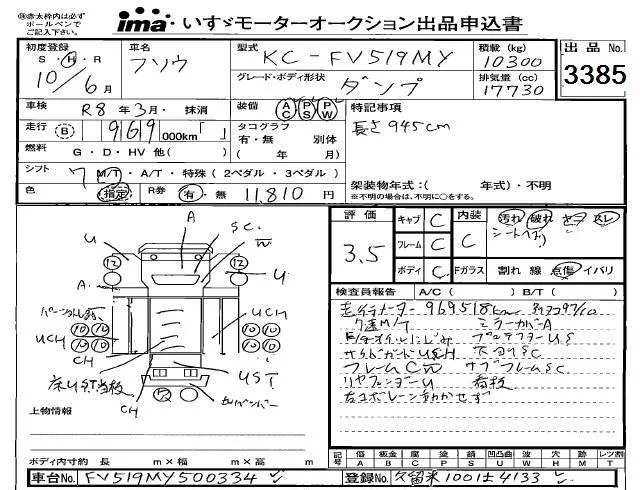 ※赤太枠内は必ず
ボールペンで
ご記入下さい。
ima・いすゞモーターオークション出品申込書
初度登録 S・H・R 10/6月
車名 フソウ
型式 KC-FV519MY
積載(kg) 10300
出品No. 3385
グレード・ボディ形状 ダンプ
排気量(cc) 17730
車検 R8年3月・抹消
装備 AC PS PW
特記事項
長さ945cm
走行 (B) 969,000km「 」
タコグラフ 有・無 別体
( 年 月)
燃料 G・D・HV 他( )
シフト 7 M/T・A/T・特殊(2ペダル・3ペダル)
架装物年式:( 年式)・不明
※不明の場合は、不明に○をする。
色 (指定) R券 有・無 11,810円
評価 3.5
キャブ C
内装 C
汚れ 破れ コゲ スレ
フレーム C
ボディ C
Fガラス 割れ 線 点傷 イバリ
A
SC.
W
U
12
12
U
A.
UCH
UCH
10 10 10 10
10 10 10 10
CH
UST
CH
検査員報告 A/C( ) B/T( )
走行メーター 969518km
7速M/T ミラーカバーA
サイドガードUSCH
フレームCW サブフレームSC
リヤフェンダーU
右コボレーン動かせず
上物情報
ボディ内寸約 長 m×幅 m×高 m
記号 傷A 板金B 腐C 塗P 錆S 凹凸曲U 波W 穴H 跡M レンズ割T
車台No. FV519MY500334
登録No. 久留米100は4133